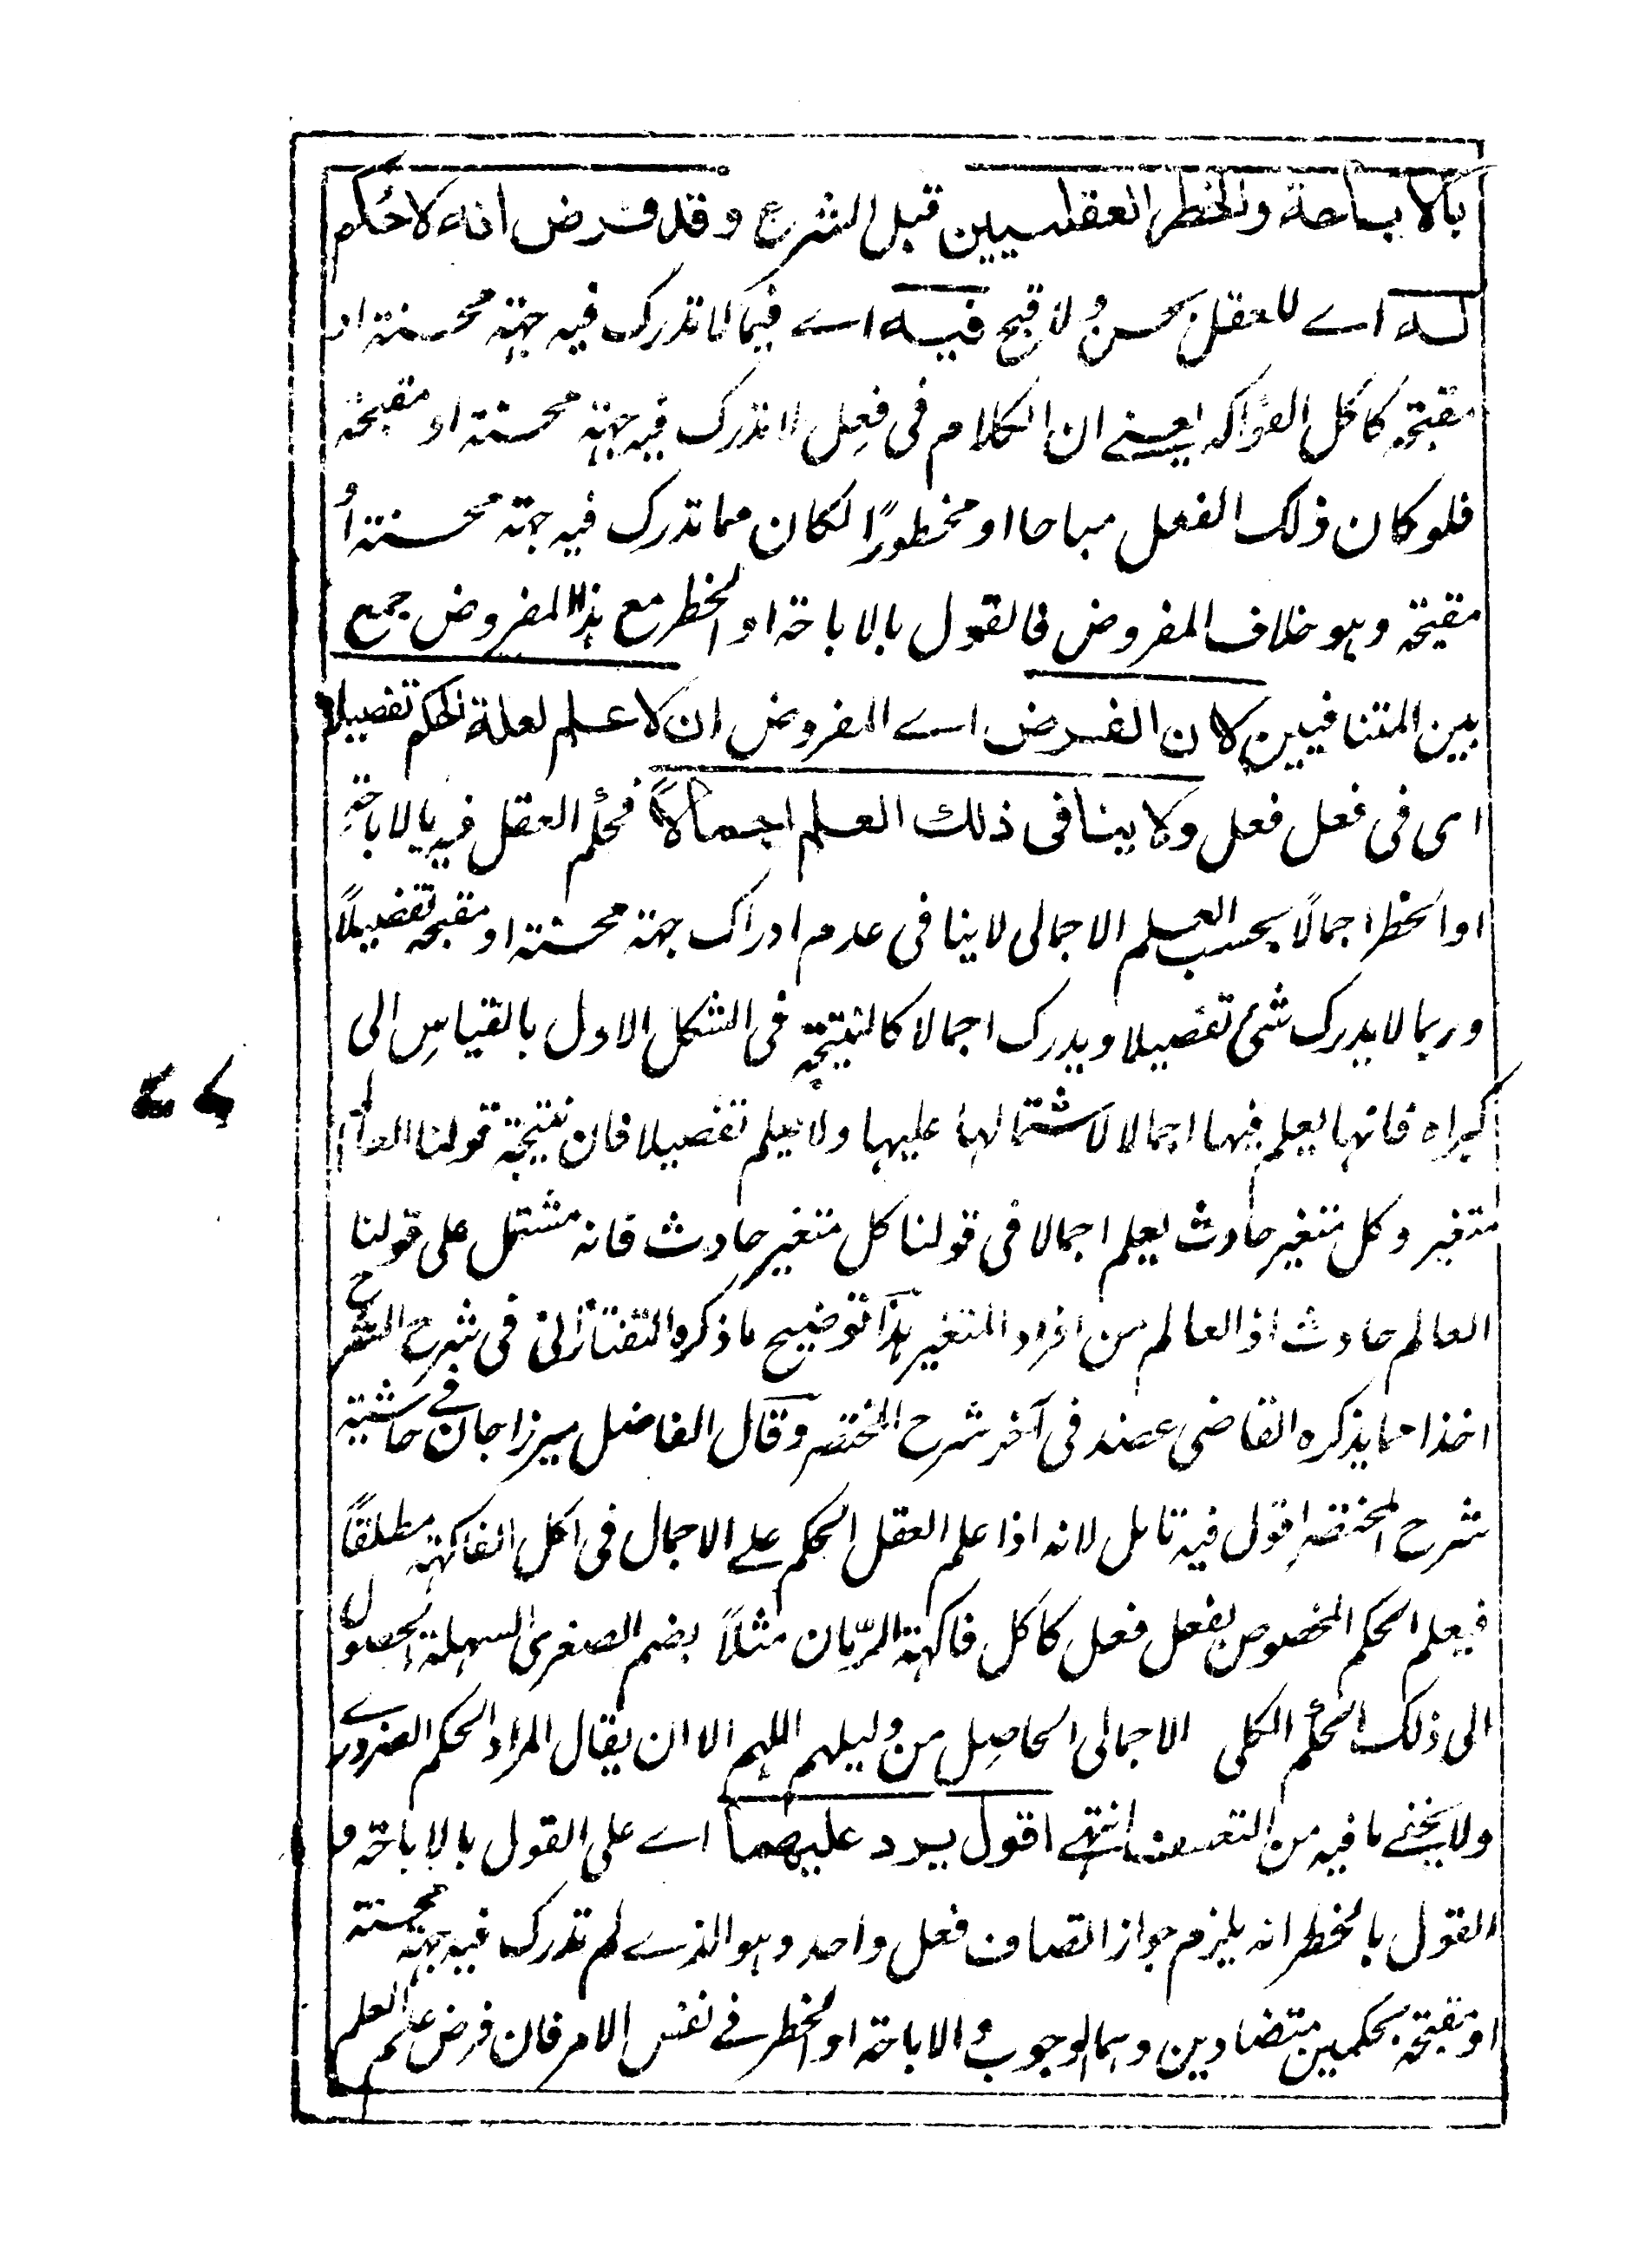 بالاباحة والخطر العقليين قبل الشرع وقد فرض انه لا حكم
له اے للعقل بحسن ولا قبح فيه اے فيما لا تدرك فيه جهة محسنة او
مقبحة كاكل الفواكه يعنے ان الكلام فى فعل لا تدرك فيه جهة محسنة او مقبحة
فلو كان ذلك الفعل مباحا او مخطورًا لكان مما تدرك فيه جهة محسنة أو
مقبحة وهو خلاف المفروض فالقول بالاباحة او الخطر مع هذا المفروض جمع
بين المتنافيين لان الفرض اے المفروض ان لا علم لعلة الحكم تفصيلا
اى فى فعل فعل ولا ينافى ذلك العلم اجمالاً فحكم العقل فيه بالاباحة
او الخطر اجمالًا بحسب العلم الاجمالى لا ينافى عدم ادراك جهة محسنة او مقبحة تفصيلاً
وربما لا يدرك شئ تفصيلا ويدرك اجمالا كالنتيجة فى الشكل الاول بالقياسِ الى
كبراه فانها يعلم فيها اجمالا لاشتمالها عليها ولا يعلم تفصيلا فان نتيجة قولنا العالم
متغير وكل متغير حادث يعلم اجمالا فى قولنا كل متغير حادث فانه مشتمل على قولنا
العالم حادث اذ العالم من افراد المتغير هذا توضيح ما ذكره التفتازانى فى شرح الشرح
اخذا مما يذكره القاضى عضد فى آخر شرح المختصر وقال الفاضل ميرزا جان فے حاشية
شرح المختصر اقول فيه تامل لانه اذا علم العقل الحكم علے الاجمال فى اكل الفاكهة مطلقاً
فيعلم الحكم المخصوص بفعل فعل كاكل فاكهة الرّمان مثلاً بضم الصغرى السهلة الحصول
الى ذلك الحكم الكلى الاجمالى الحاصل من دليلهم اللهم الا ان يقال المراد الحكم الضرورے
ولا يخفے ما فيه من التعسف انتهے اقول يرد عليهما اے على القول بالاباحة و
القول بالخطر انه يلزم جواز اتصاف فعل واحد وهو الذے لم تدرك فيه جهة محسنة
او مقبحة بحكمين متضادين وهما الوجوب و الاباحة او الخطر فے نفس الامر فان فرض علم العلم